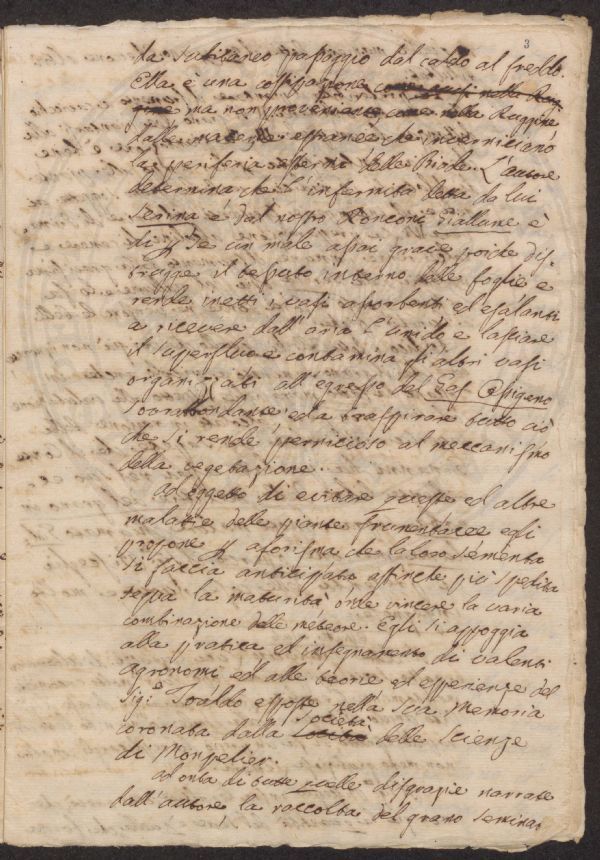 3
da subitaneo passaggio dal caldo al freddo.
Ella è una ossigazione come quasi nella Rug
gine ma non proveniente come nella Ruggine
dalle materie estranee che inverniciano
la periferia esterna delle Biade. L'autore
determina che l'infermità detta da lui
Serina è dal nostro Ronconi Giallume è
di p se un male assai grave poiche dis
trugge il tessuto interno delle foglie e
rende inetti i vasi assorbenti ed esalanti
a ricevere dall'aria l'umido e lasciare
il superfluo e contamina gli altri vasi
organizzati all'egresso del Gas Ossigeno
sovrabondante ed a traspirare tutto ciò
che si rende pernicioso al meccanismo
della vegetazione.
Ad oggetto di evitare queste ed altre
malatie delle piante Frumentacee egli
propone p aforisma che la loro sementa
si faccia anticipata affinche più spedita
segua la maturità onde vincere la varia
combinazione delle meteore. Egli si appoggia
alla pratica ed insegnamento di valenti
agronomi ed alle teorie ed esperienze del
Sig.e Toaldo esposte nella sua Memoria
coronata dalla Società delle Scienze
di Monpelier.
Ad onta di tutte quelle disgrazie narrate
dall'autore, la raccolta del grano semina